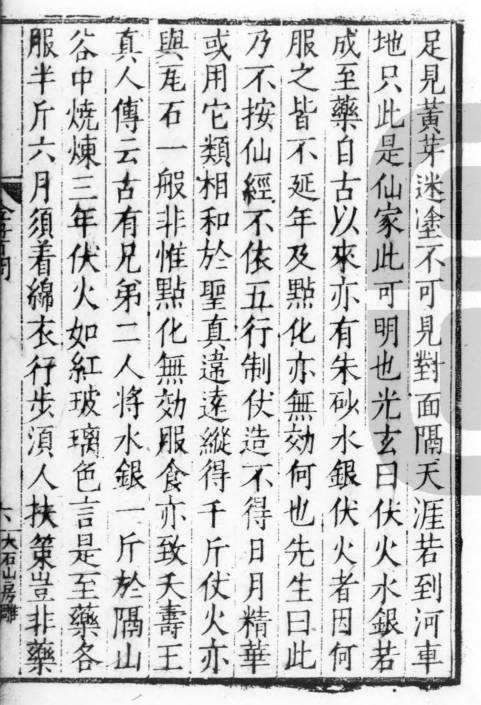 足見黃芽迷塗不可見對面隔天涯若到河車
地只此是仙家此可明也光玄曰伏火水銀若
成至藥自古以來亦有朱砂水銀伏火者因何
服之皆不延年及點化亦無効何也先生曰此
乃不按仙經不依五行制伏造不得日月精華
或用它類相和於聖真違遠縱得千斤伏火亦
與瓦石一般非惟點化無効服食亦致夭壽王
真人傳云古有兄弟二人將水銀一斤於隔山
谷中燒煉三年伏火如紅玻璃色言是至藥各
服半斤六月須着綿衣行步湏人扶策豈非藥
六
大石山房雕